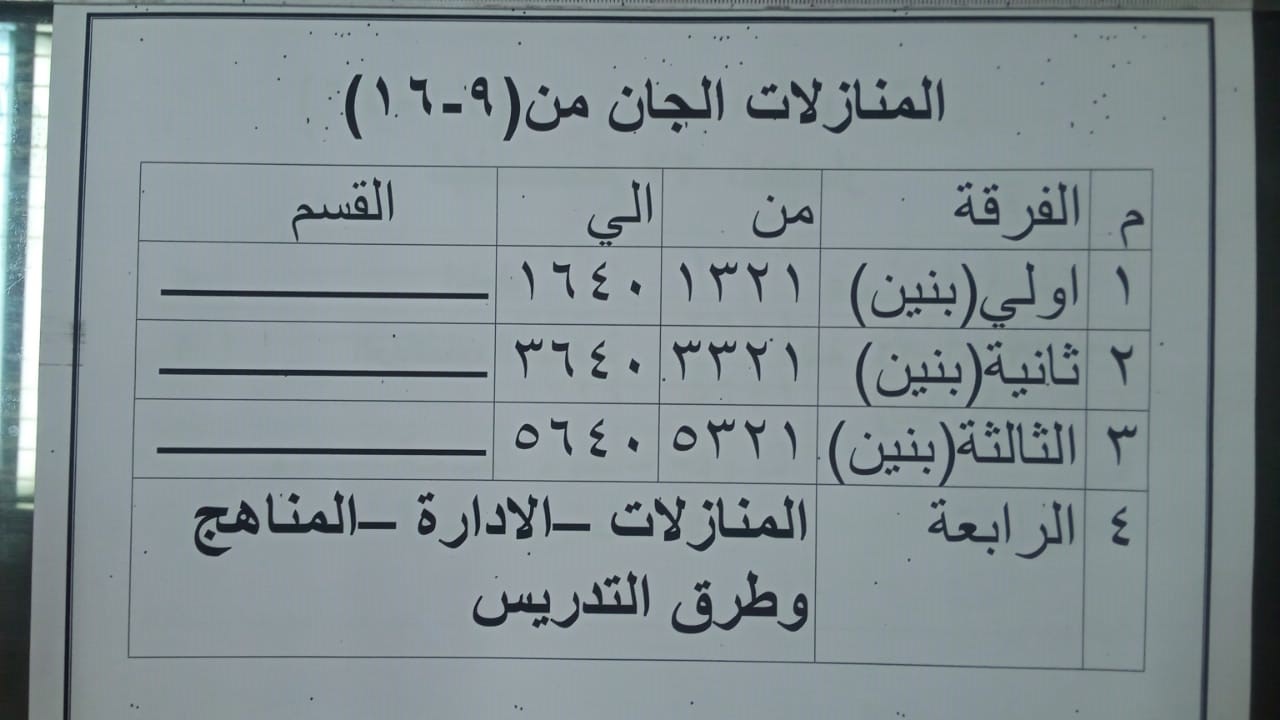 المنازلات الجان من(٩-١٦)
م الفرقة من الي القسم
١ اولي(بنين) ١٣٢١ ١٦٤٠
٢ ثانية(بنين) ٣٣٢١ ٣٦٤٠
٣ الثالثة(بنين) ٥٣٢١ ٥٦٤٠
٤ الرابعة المنازلات –الادارة –المناهج
وطرق التدريس